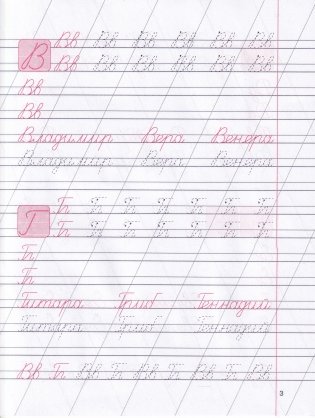 В Вв Вв Вв Вв Вв Вв
Вв Вв Вв Вв Вв Вв
Вв
Вв
Владимир Вера Венера
Владимир Вера Венера
Г Гг Гг Гг Гг Гг Гг Гг
Гг Гг Гг Гг Гг Гг Гг
Гг
Гг
Гитара Гриб Геннадий
Гитара Гриб Геннадий
Вв Гг Вв Гг Вв Гг Вв Гг Вв Гг
3